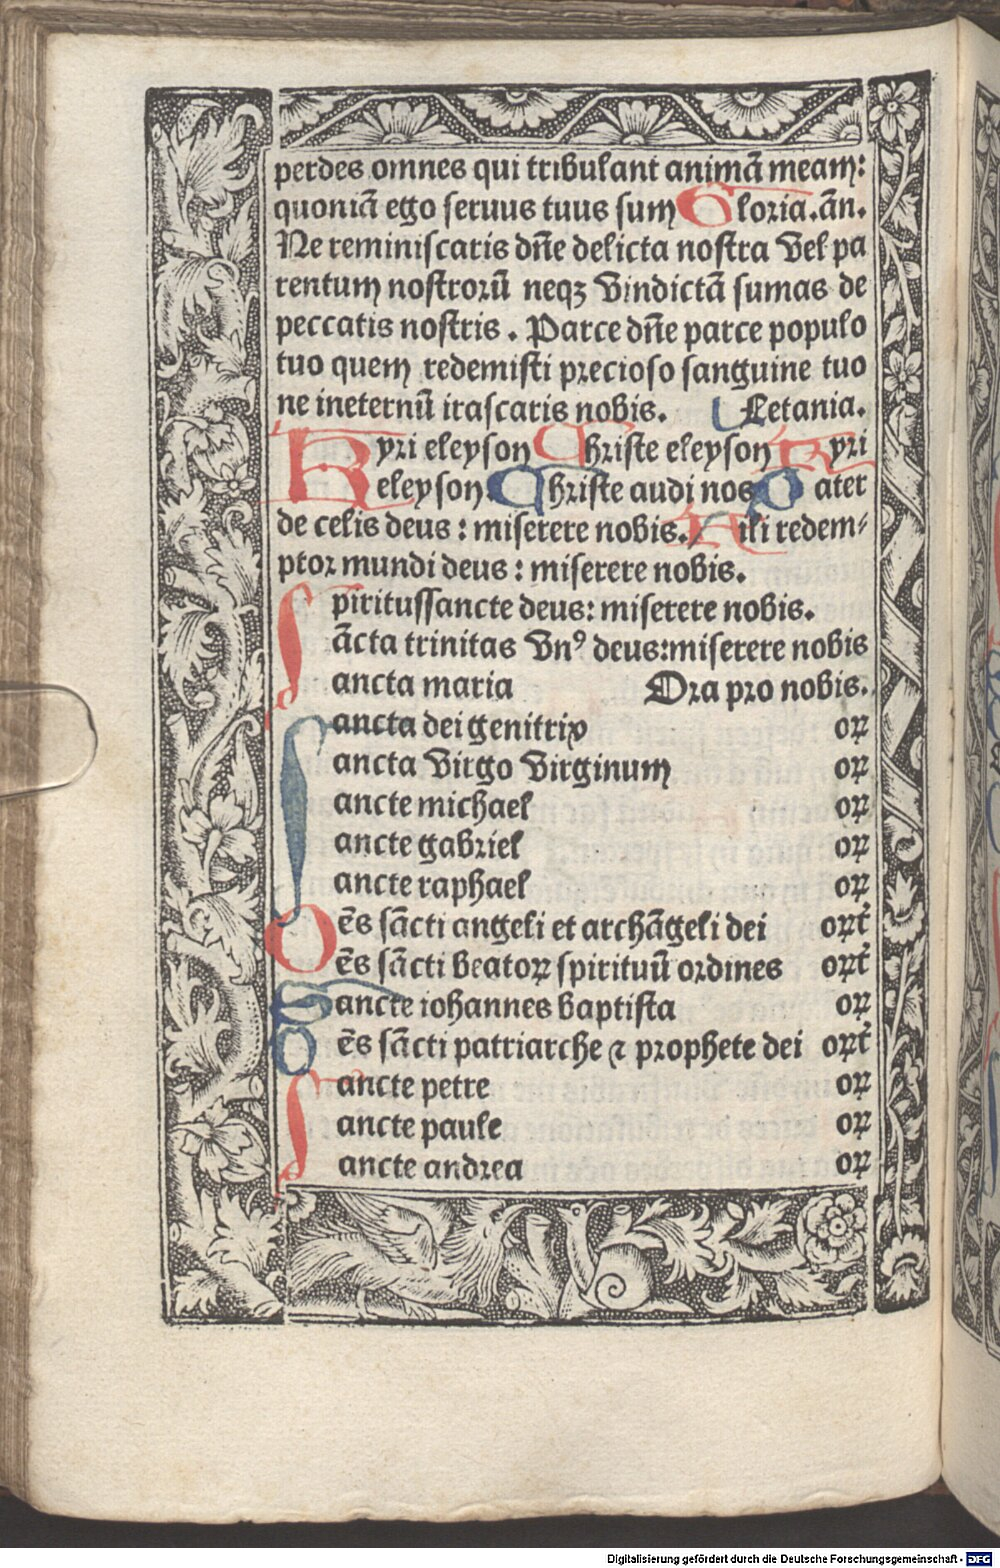 perdes omnes qui tribulant animā meam:
quoniā ego seruus tuus sum Gloria. an̄.
Ne reminiscaris dn̄e delicta nostra Vel pa
rentum nostrorū neqꝫ Vindictā sumas de
peccatis nostris . Parce dn̄e parce populo
tuo quem redemisti precioso sanguine tuo
ne ineternū irascaris nobis. Letania.
Kyri eleyson Christe eleyson Kyri
eleyson Christe audi nos Pater
de celis deus : miserere nobis. Fili redem⸗
ptor mundi deus : miserere nobis.
Spiritussancte deus: miserere nobis.
Sācta trinitas Vnꝰ deus:miserere nobis
Sancta maria Ora pro nobis.
Sancta dei genitrix oꝝ
Sancta Virgo Virginum oꝝ
Sancte michael oꝝ
Sancte gabriel oꝝ
Sancte raphael oꝝ
Oēs sācti angeli et archāgeli dei oꝝt̄
Oēs sācti beatoꝝ spirituū ordines oꝝt̄
Sancte iohannes baptista oꝝ
Oēs sācti patriarche ⁊ prophete dei oꝝt̄
Sancte petre oꝝ
Sancte paule oꝝ
Sancte andrea oꝝ
Digitalisierung gefördert durch die Deutsche Forschungsgemeinschaft - DFG